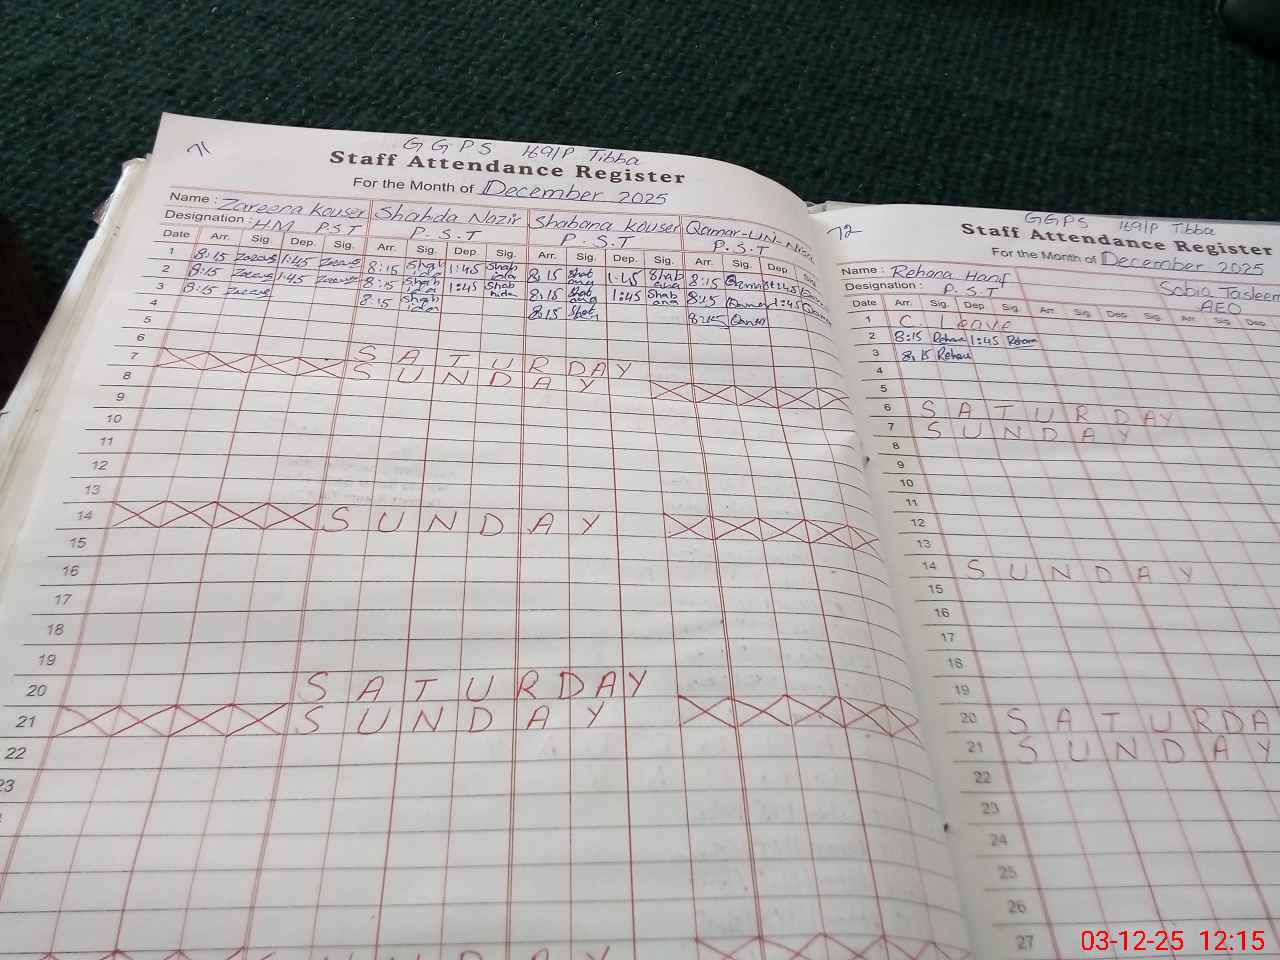 71
GGPS 169/P Tibba
Staff Attendance Register
For the Month of December 2025
Name: Zareena Kouser Shahda Nazir Shabana Kouser Qamar-UN-Nisa
Designation: HM P.S.T P.S.T P.S.T P.S.T
Date Arr. Sig. Dep. Sig. Arr. Sig. Dep. Sig. Arr. Sig. Dep. Sig. Arr. Sig. Dep. Sig.
1 8:15 1:45 8:15 1:45 8:15 1:45 8:15 1:45
2 8:15 1:45 8:15 1:45 8:15 1:45 8:15 1:45
3 8:15 8:15 8:15 8:15
4
5
6 SATURDAY
7 SUNDAY
8
9
10
11
12
13
14 SUNDAY
15
16
17
18
19
20 SATURDAY
21 SUNDAY
22
23
72
GGPS 169/P Tibba
Staff Attendance Register
For the Month of December 2025
Name: Rehana Hanif Sobia Tasleem
Designation: P.S.T AEO
Date Arr. Sig. Dep. Sig. Arr. Sig. Dep. Sig. Arr. Sig. Dep.
1 C Leave
2 8:15 Rehana 1:45 Rehana
3 8:15 Rehana
4
5
6 SATURDAY
7 SUNDAY
8
9
10
11
12
13
14 SUNDAY
15
16
17
18
19
20 SATURDA
21 SUNDAY
22
23
24
25
26
27
03-12-25 12:15